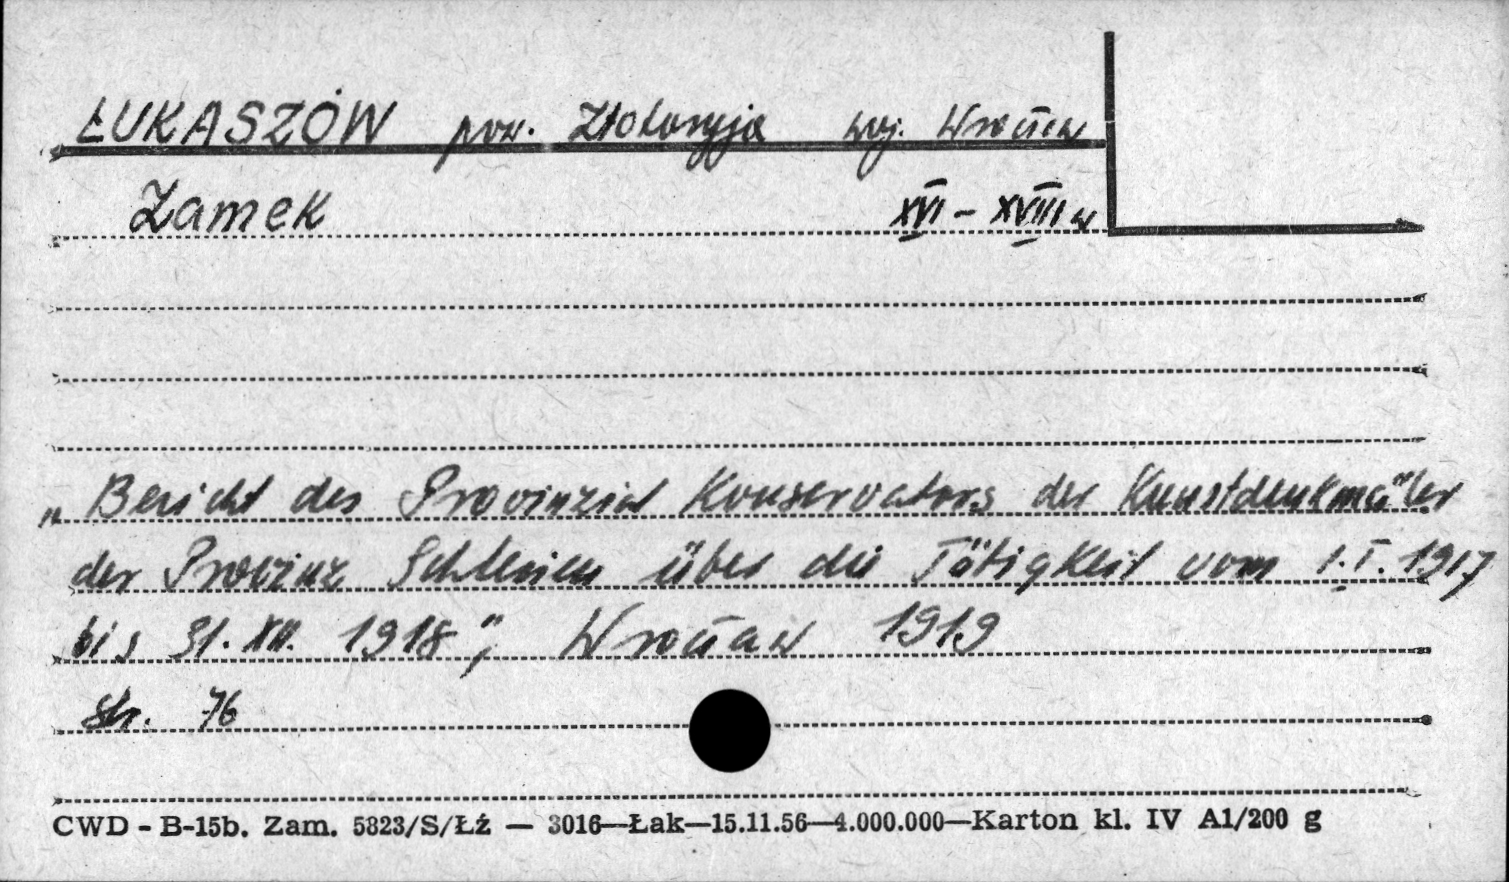 ŁUKASZÓW pow. Złotoryja woj. Wrocław
Zamek XVI - XVIII w
„Bericht des Provinzial Konservators der Kunstdenkmäler
der Provinz Schlesien über die Tätigkeit vom 1.I.1917
bis 31.XII.1918", Wrocław 1919
str. 76
CWD - B-15b. Zam. 5823/S/Łż — 3016—Łak—15.11.56—4.000.000—Karton kl. IV A1/200 g